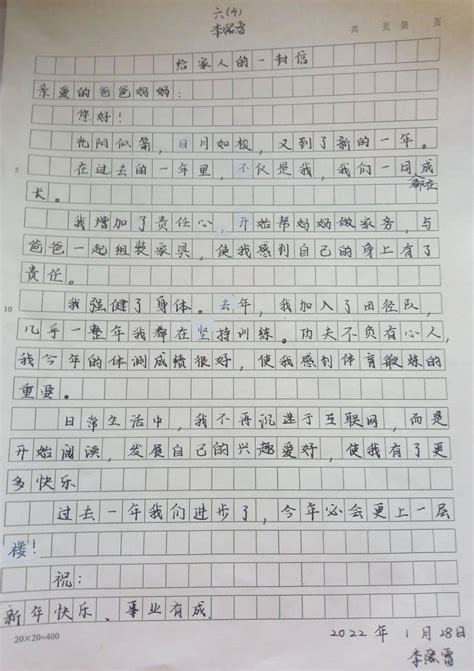 六(4)
共 页 第 页
给家人的一封信
亲爱的爸爸妈妈:
您好!
光阴似箭,日月如梭,又到了新的一年。
5 在过去的一年里,不仅是我,我们一同都在成
长。
我增加了责任心,开始帮妈妈做家务,与
爸爸一起组装家具,使我感到自己的身上有了
责任。
10 我强健了身体。去年,我加入了田径队,
几乎一整年我都在坚持训练。功夫不负有心人,
我今年的体测成绩很好,使我感到体育锻炼的
重要。
日常生活中,我不再沉迷于互联网,而是
开始阅读,发展自己的兴趣爱好,使我有了更
多快乐
过去一年我们进步了,今年必会更上一层
楼!
祝:
新年快乐、事业有成.
20×20=400
2022年1月28日